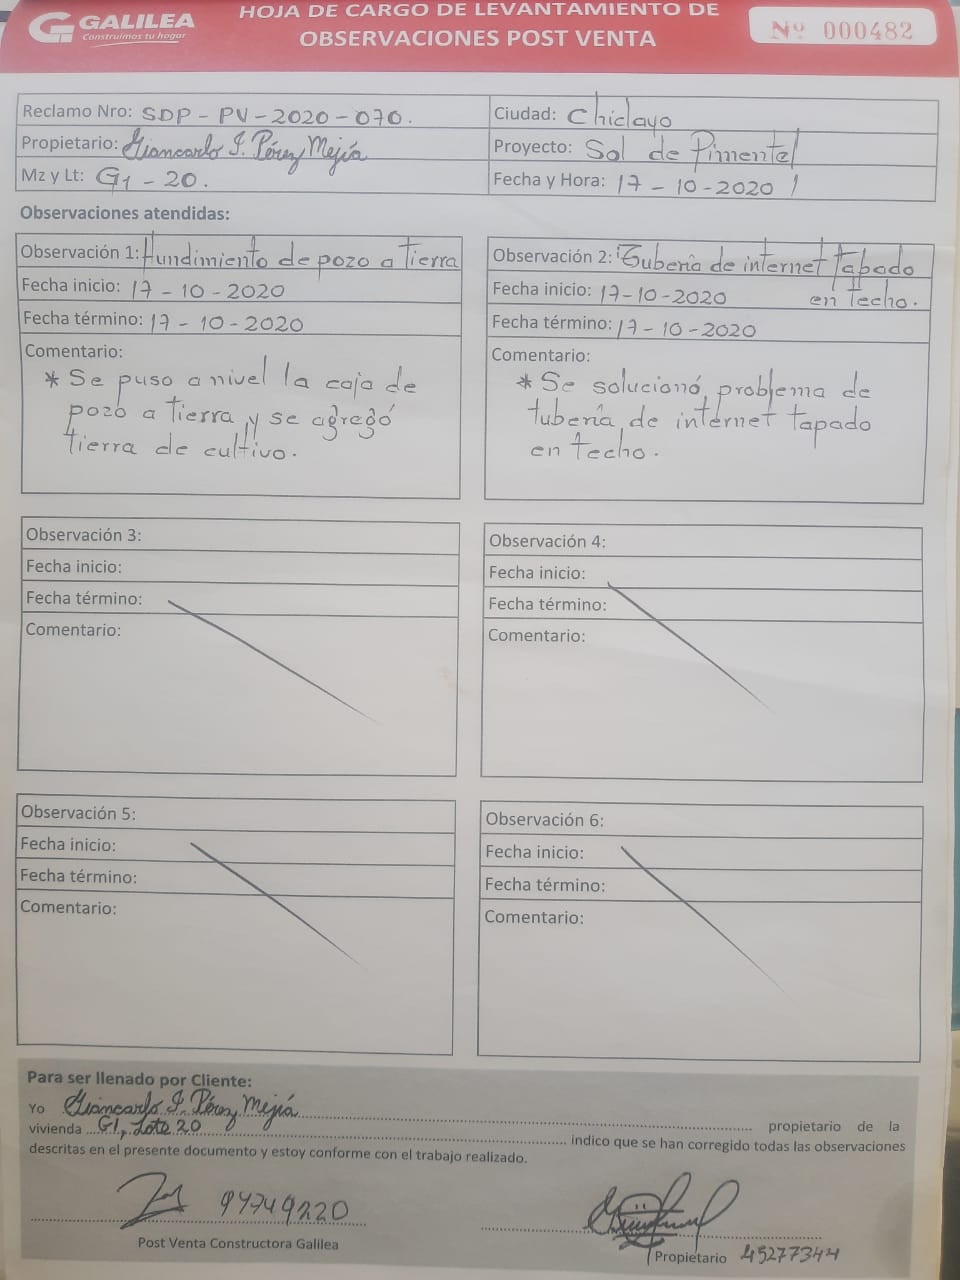 GALILEA
Construimos tu hogar
HOJA DE CARGO DE LEVANTAMIENTO DE
OBSERVACIONES POST VENTA
Nº 000482
Reclamo Nro: SDP - PV - 2020 - 070.
Ciudad: Chiclayo
Propietario: Giancarlo I. Pérez Mejía
Proyecto: Sol de Pimentel
Mz y Lt: G1 - 20.
Fecha y Hora: 17 - 10 - 2020 /
Observaciones atendidas:
Observación 1: Hundimiento de pozo a Tierra
Fecha inicio: 17 - 10 - 2020
Fecha término: 17 - 10 - 2020
Comentario:
* Se puso a nivel la caja de
pozo a tierra y se agregó
tierra de cultivo.
Observación 2: Tubería de internet tapado
en techo.
Fecha inicio: 17-10-2020
Fecha término: 17 - 10 - 2020
Comentario:
* Se solucionó problema de
tubería de internet tapado
en techo.
Observación 3:
Fecha inicio:
Fecha término:
Comentario:
Observación 4:
Fecha inicio:
Fecha término:
Comentario:
Observación 5:
Fecha inicio:
Fecha término:
Comentario:
Observación 6:
Fecha inicio:
Fecha término:
Comentario:
Para ser llenado por Cliente:
Yo Giancarlo I. Pérez Mejía propietario de la
vivienda G1, Lote 20 indico que se han corregido todas las observaciones
descritas en el presente documento y estoy conforme con el trabajo realizado.
Post Venta Constructora Galilea
Propietario 45277344